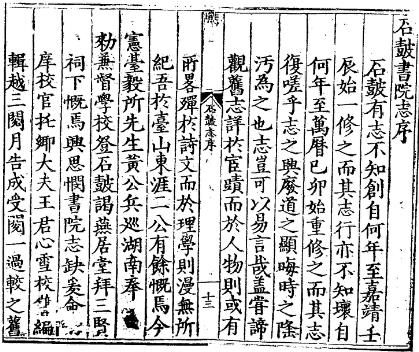 石鼓書院志序
石鼓有志不知創自何年至嘉靖壬
辰始一修之而其志行亦不知壞自
何年至萬曆巳卯始重修之而其志
復嗟乎志之興廢道之顯晦時之隆
汚為之也志豈可以易言哉盖嘗諦
觀舊志詳於宦蹟而於人物則或有
石鼓志序
十三
所畧殫於詩文而於理學則漫無所
紀吾於臺山東涯二公有餘慨焉今
憲臺毅所先生黃公兵巡湖南奉
勑兼督學校登石鼓謁燕居堂拜三賢
祠下慨焉興思憫書院志缺爰命
庠校官托鄉大夫王君心雪校讐編
輯越三閱月告成受閱一過較之舊